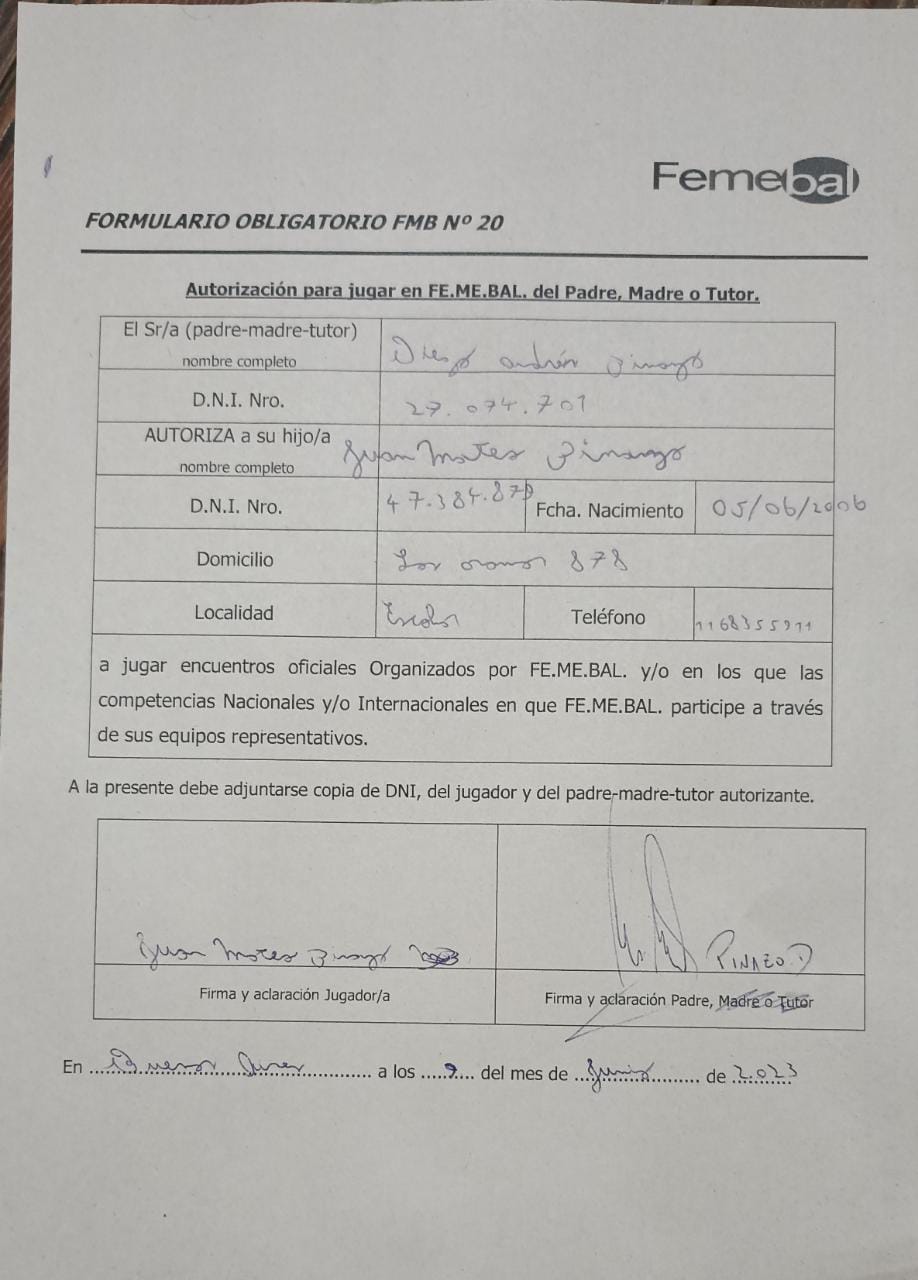 Femebal
FORMULARIO OBLIGATORIO FMB Nº 20
Autorización para jugar en FE.ME.BAL. del Padre, Madre o Tutor.
El Sr/a (padre-madre-tutor)
nombre completo
Diego Andrés Pinazo
D.N.I. Nro. 27.074.701
AUTORIZA a su hijo/a
nombre completo
Juan Mateo Pinazo
D.N.I. Nro. 47.384.87 Fcha. Nacimiento 05/06/2006
Domicilio 878
Localidad Escobar Teléfono 1168355911
a jugar encuentros oficiales Organizados por FE.ME.BAL. y/o en los que las
competencias Nacionales y/o Internacionales en que FE.ME.BAL. participe a través
de sus equipos representativos.
A la presente debe adjuntarse copia de DNI, del jugador y del padre-madre-tutor autorizante.
Juan Mateo Pinazo
PINAZO D
Firma y aclaración Jugador/a
Firma y aclaración Padre, Madre o Tutor
En Buenos Aires a los 9 del mes de Junio de 2.023